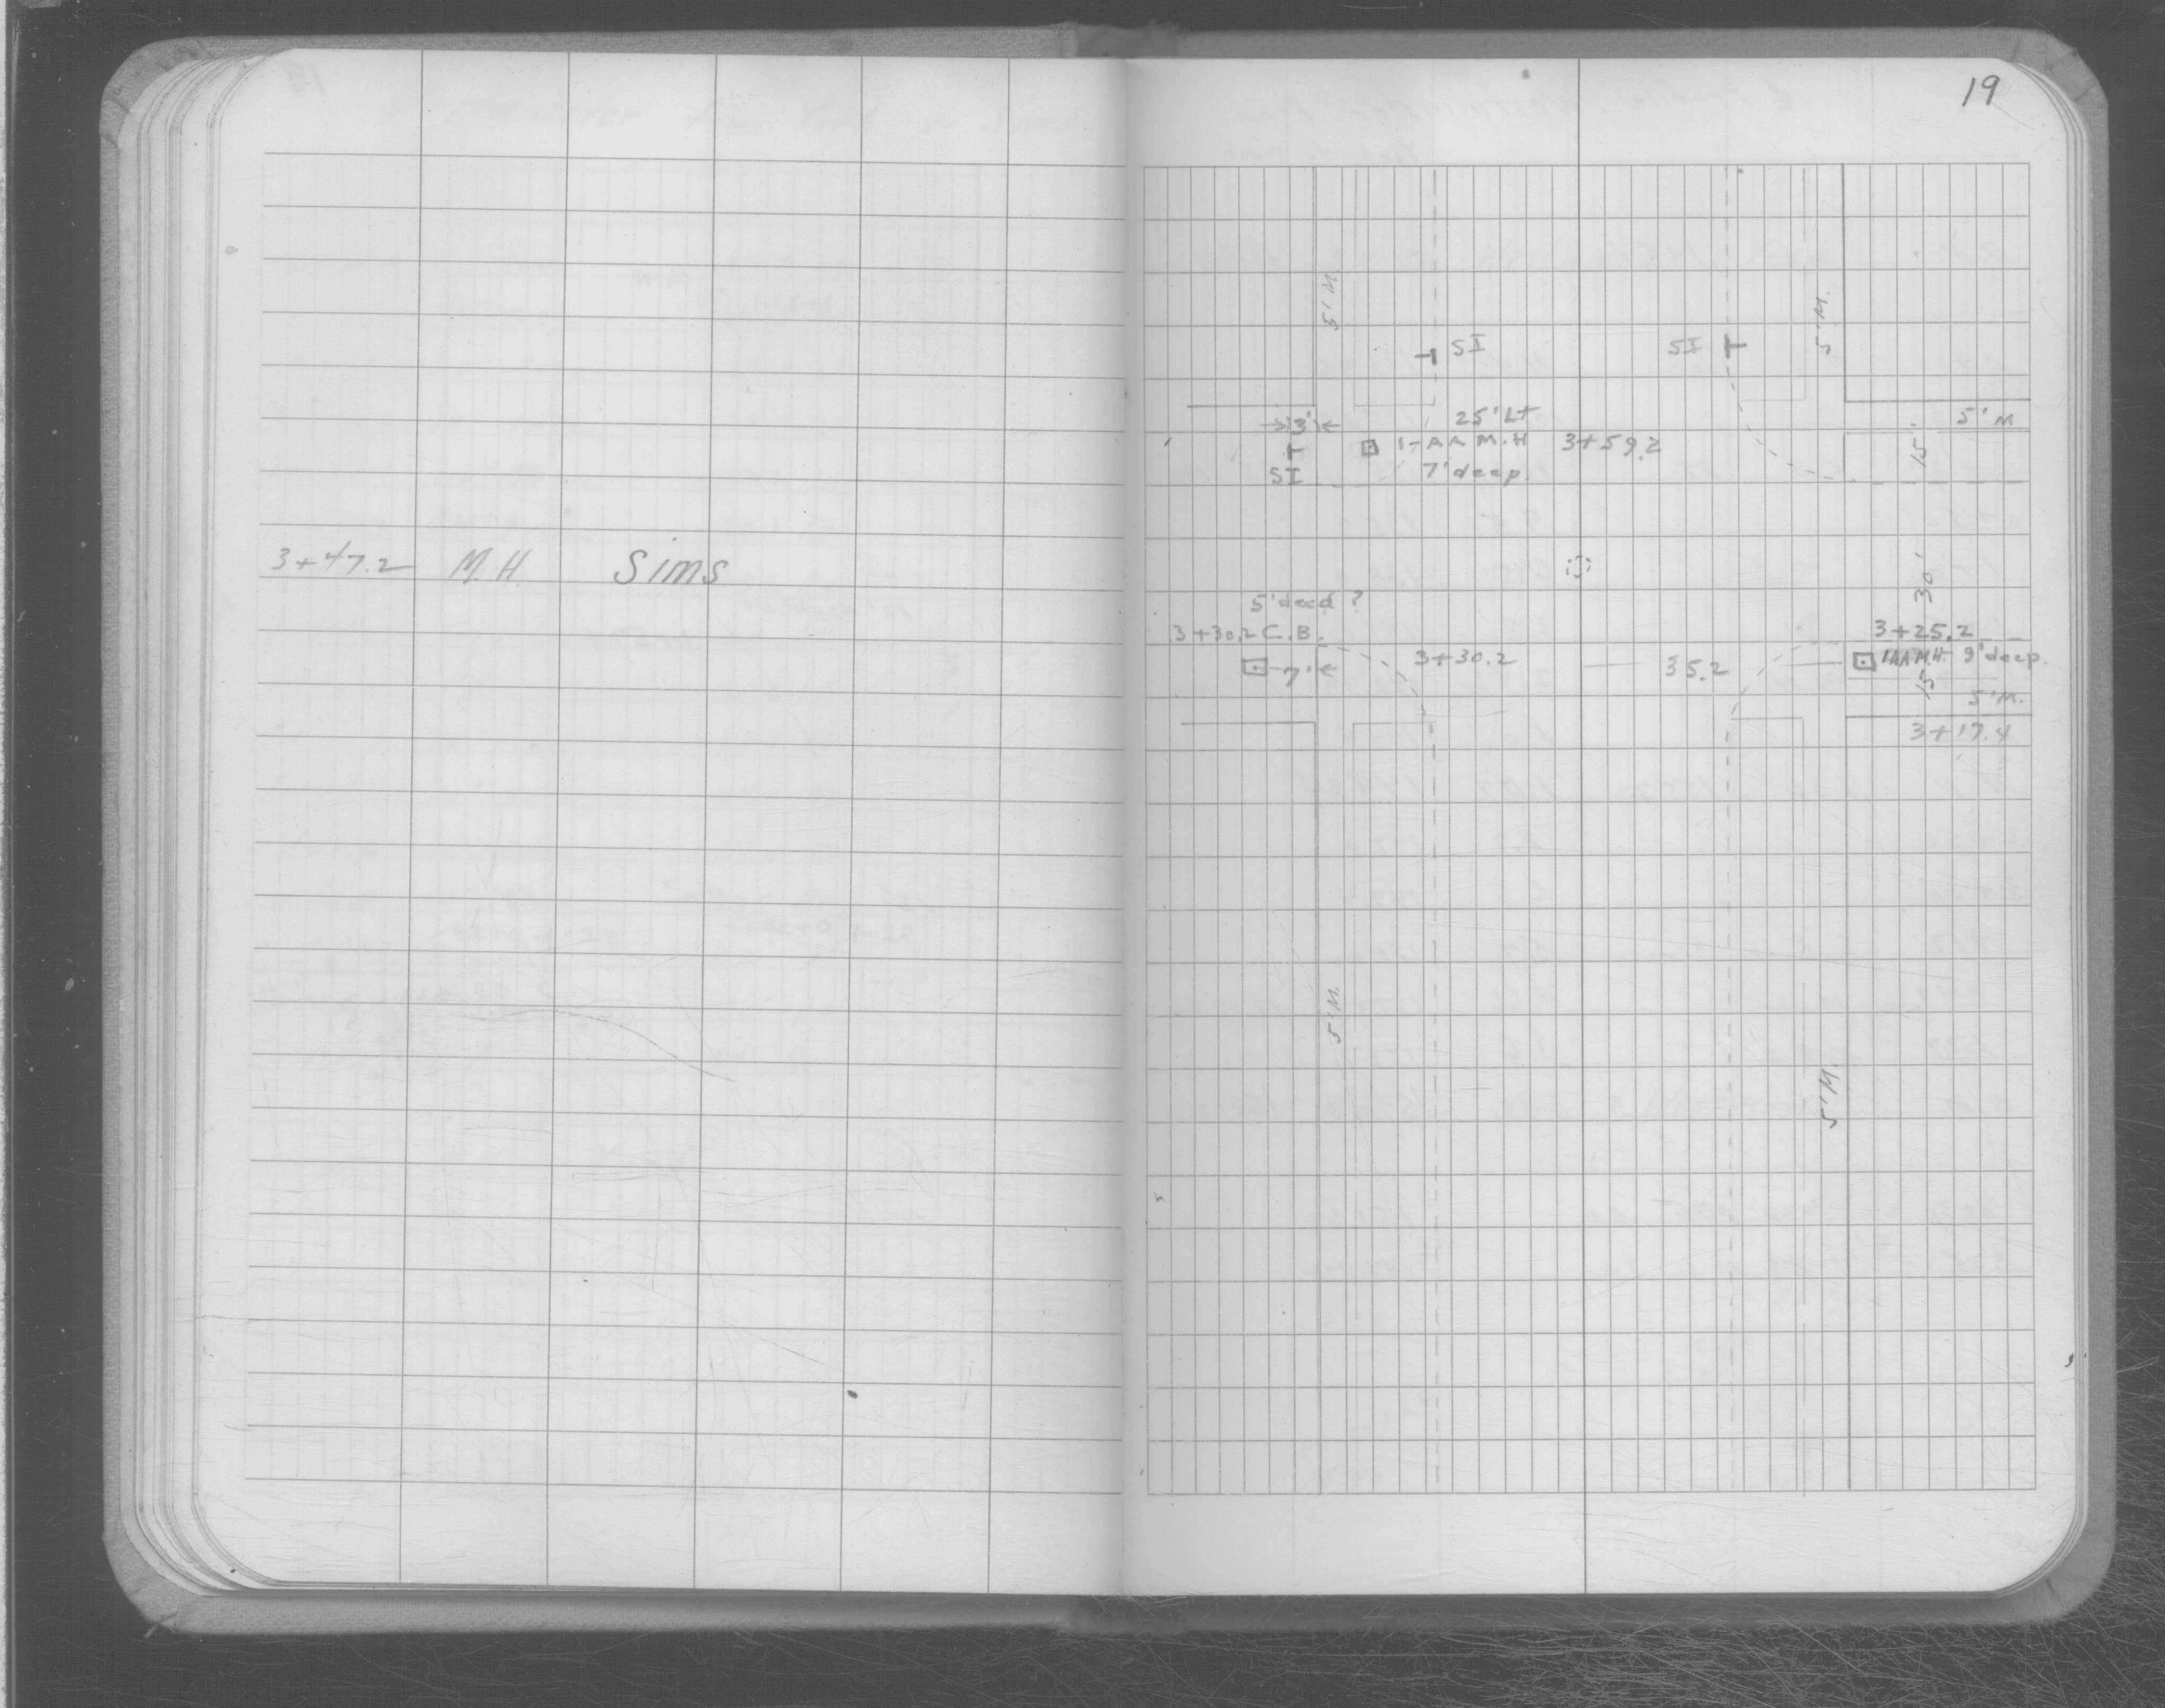 19
3+47.2 M.H. Sims
5'M.
5'M.
SI
SI
3'
25' Lt
5'M
1-AA M.H 3+59.2
15'
SI
7' deep.
30'
5' deed ?
3+30.2 C.B.
3+25.2
7'
3+30.2
35.2
1AA M.H. 9' deep.
15'
5'M.
3+17.4
5'M.
5'M.